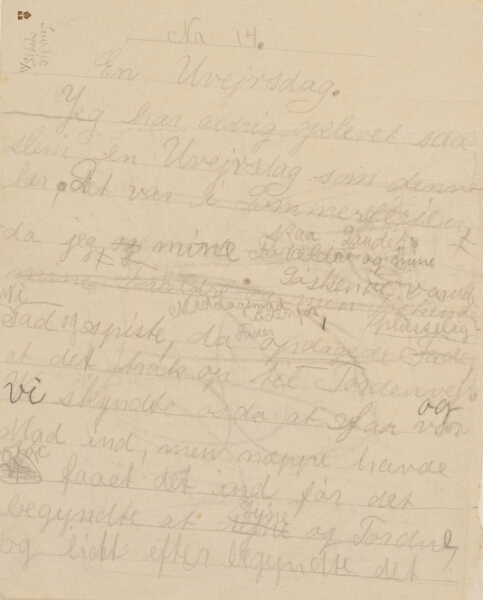 Nr 14.
En Uvejrsdag.
Jeg har aldrig oplevet saa
slem en Uvejrsdag som denne
her, Det var i Sommerferien,
paa Landet.
da jeg og mine Forældre og mine
Søskende var ude
mine Forældre
Middagsmad udenfor,
Vi sad og spiste, da opdagede Fader pludselig
at det trak op til Tordenvejr.
Vi skyndte os da at faa vor
Mad ind, men næppe havde
faaet det ind før det
begyndte at lyne og Tordne,
og lidt efter begyndte det